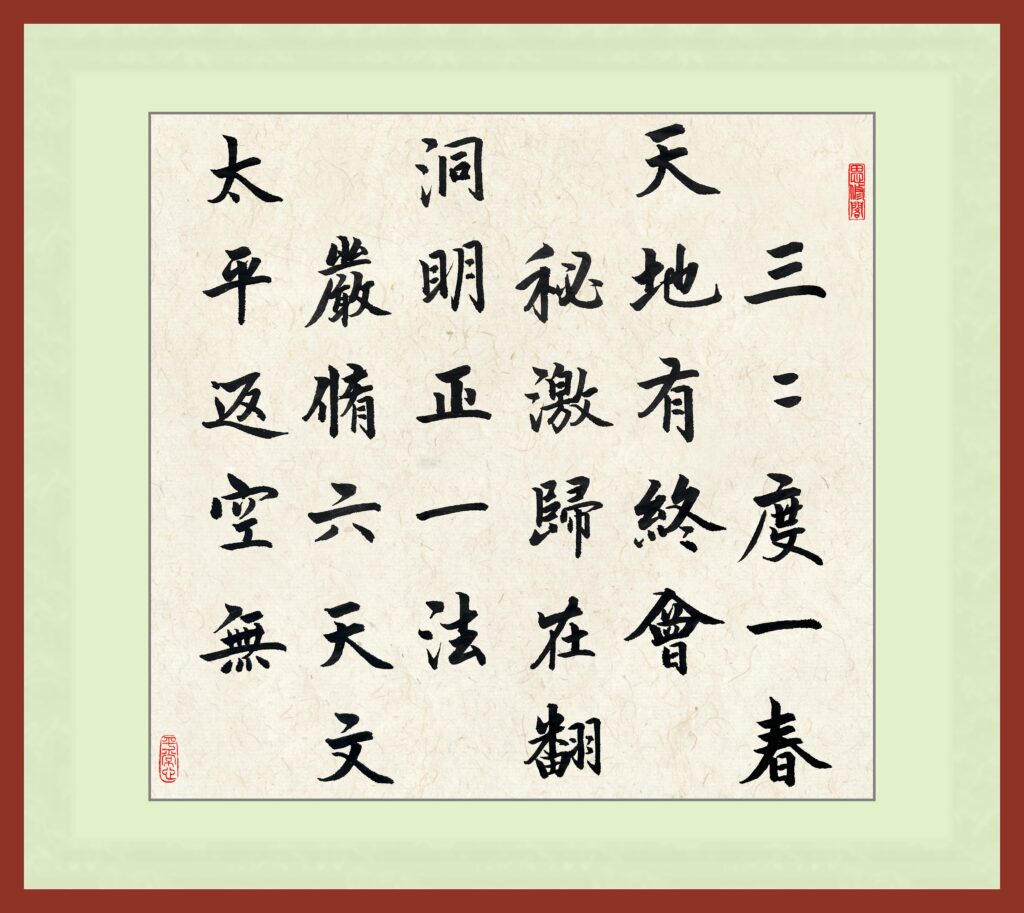 思修閣
三二度一春
天地有終會
秘激歸在翻
洞明正一法
嚴脩六天文
太平返空無
平常心